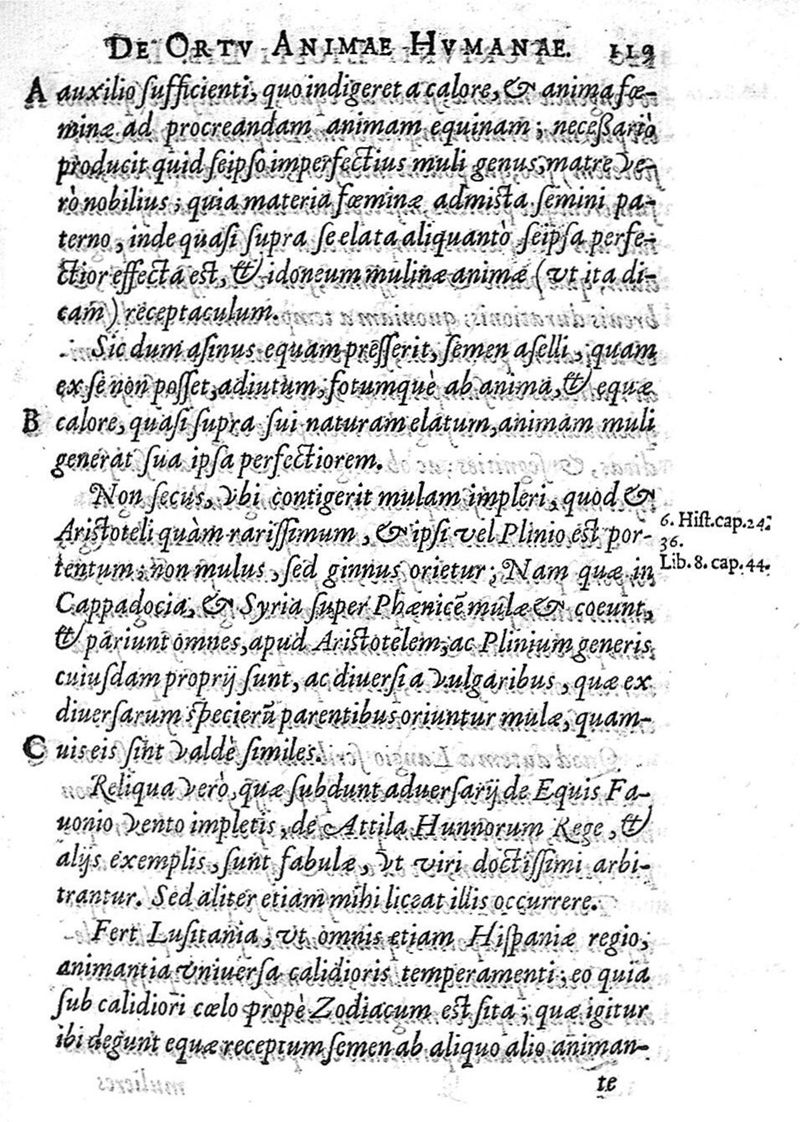 DE ORTV ANIMAE HVMANAE. 119
A auxilio ſufficienti, quo indigeret a calore, & anima fœ-
minæ ad procreandam animam equinam; neceßariò
producit quid ſeipſo imperfectius muli genus, matre ve-
rò nobilius; quia materia fœminæ admista ſemini pa-
terno, inde quaſi ſupra ſe elata aliquanto ſeipſa perfe-
ctior effecta est, & idoneum mulinæ animæ (vt ita di-
cam) receptaculum.
Sic dum aſinus equam preſſerit, ſemen aſelli, quam
ex ſe non poſſet, adiutum, fotumquè ab anima, & equæ
B calore, quaſi ſupra ſui naturam elatum, animam muli
generat ſua ipſa perfectiorem.
Non ſecus, vbi contigerit mulam impleri, quod &
Aristoteli quàm rariſſimum, & ipſi vel Plinio est por-
tentum; non mulus, ſed ginnus orietur; Nam quæ in
Cappadocia, & Syria ſuper Phænicē mulæ & coeunt,
& pariunt omnes, apud Aristotelem, ac Plinium generis
cuiuſdam proprij ſunt, ac diuerſi a vulgaribus, quæ ex
diuerſarum ſpecierū parentibus oriuntur mulæ, quam-
C uis eis ſint valdè ſimiles.
Reliqua verò, quæ ſubdunt aduerſarij de Equis Fa-
uonio vento impletis, de Attila Hunnorum Rege, &
alijs exemplis, ſunt fabulæ, vt viri doctiſſimi arbi-
trantur. Sed aliter etiam mihi liceat illis occurrere.
Fert Luſitania, vt omnis etiam Hiſpaniæ regio,
animantia vniuerſa calidioris temperamenti; eo quia
ſub calidiori cœlo propè Zodiacum est ſita; quæ igitur
ibi degunt equæ receptum ſemen ab aliquo alio animan-
te
6. Hiſt. cap. 24.
36.
Lib. 8. cap. 44.